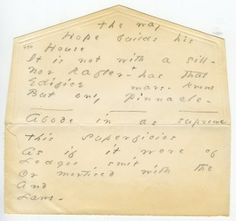 The way
Hope builds his
House
It is not with a sill -
Nor Rafter - has that
Edifice mars - knows
But only Pinnacle -
Abode in as supreme
This Superficies
As if it were of
Ledges smit
Or mortised with the
And
Laws -